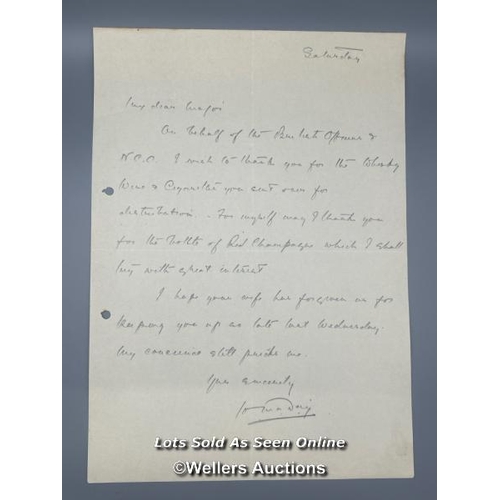 Saturday
My dear Major
On behalf of the British Officers &
N.C.O. I wish to thank you for the Whisky
Wine & Cigarettes you sent over for
distribution. For myself may I thank you
for the bottle of Red Champagne which I shall
try with great interest
I hope your wife has forgiven us for
keeping you up so late last Wednesday.
My conscience still pricks me.
Yours sincerely
Lots Sold As Seen Online
©Wellers Auctions